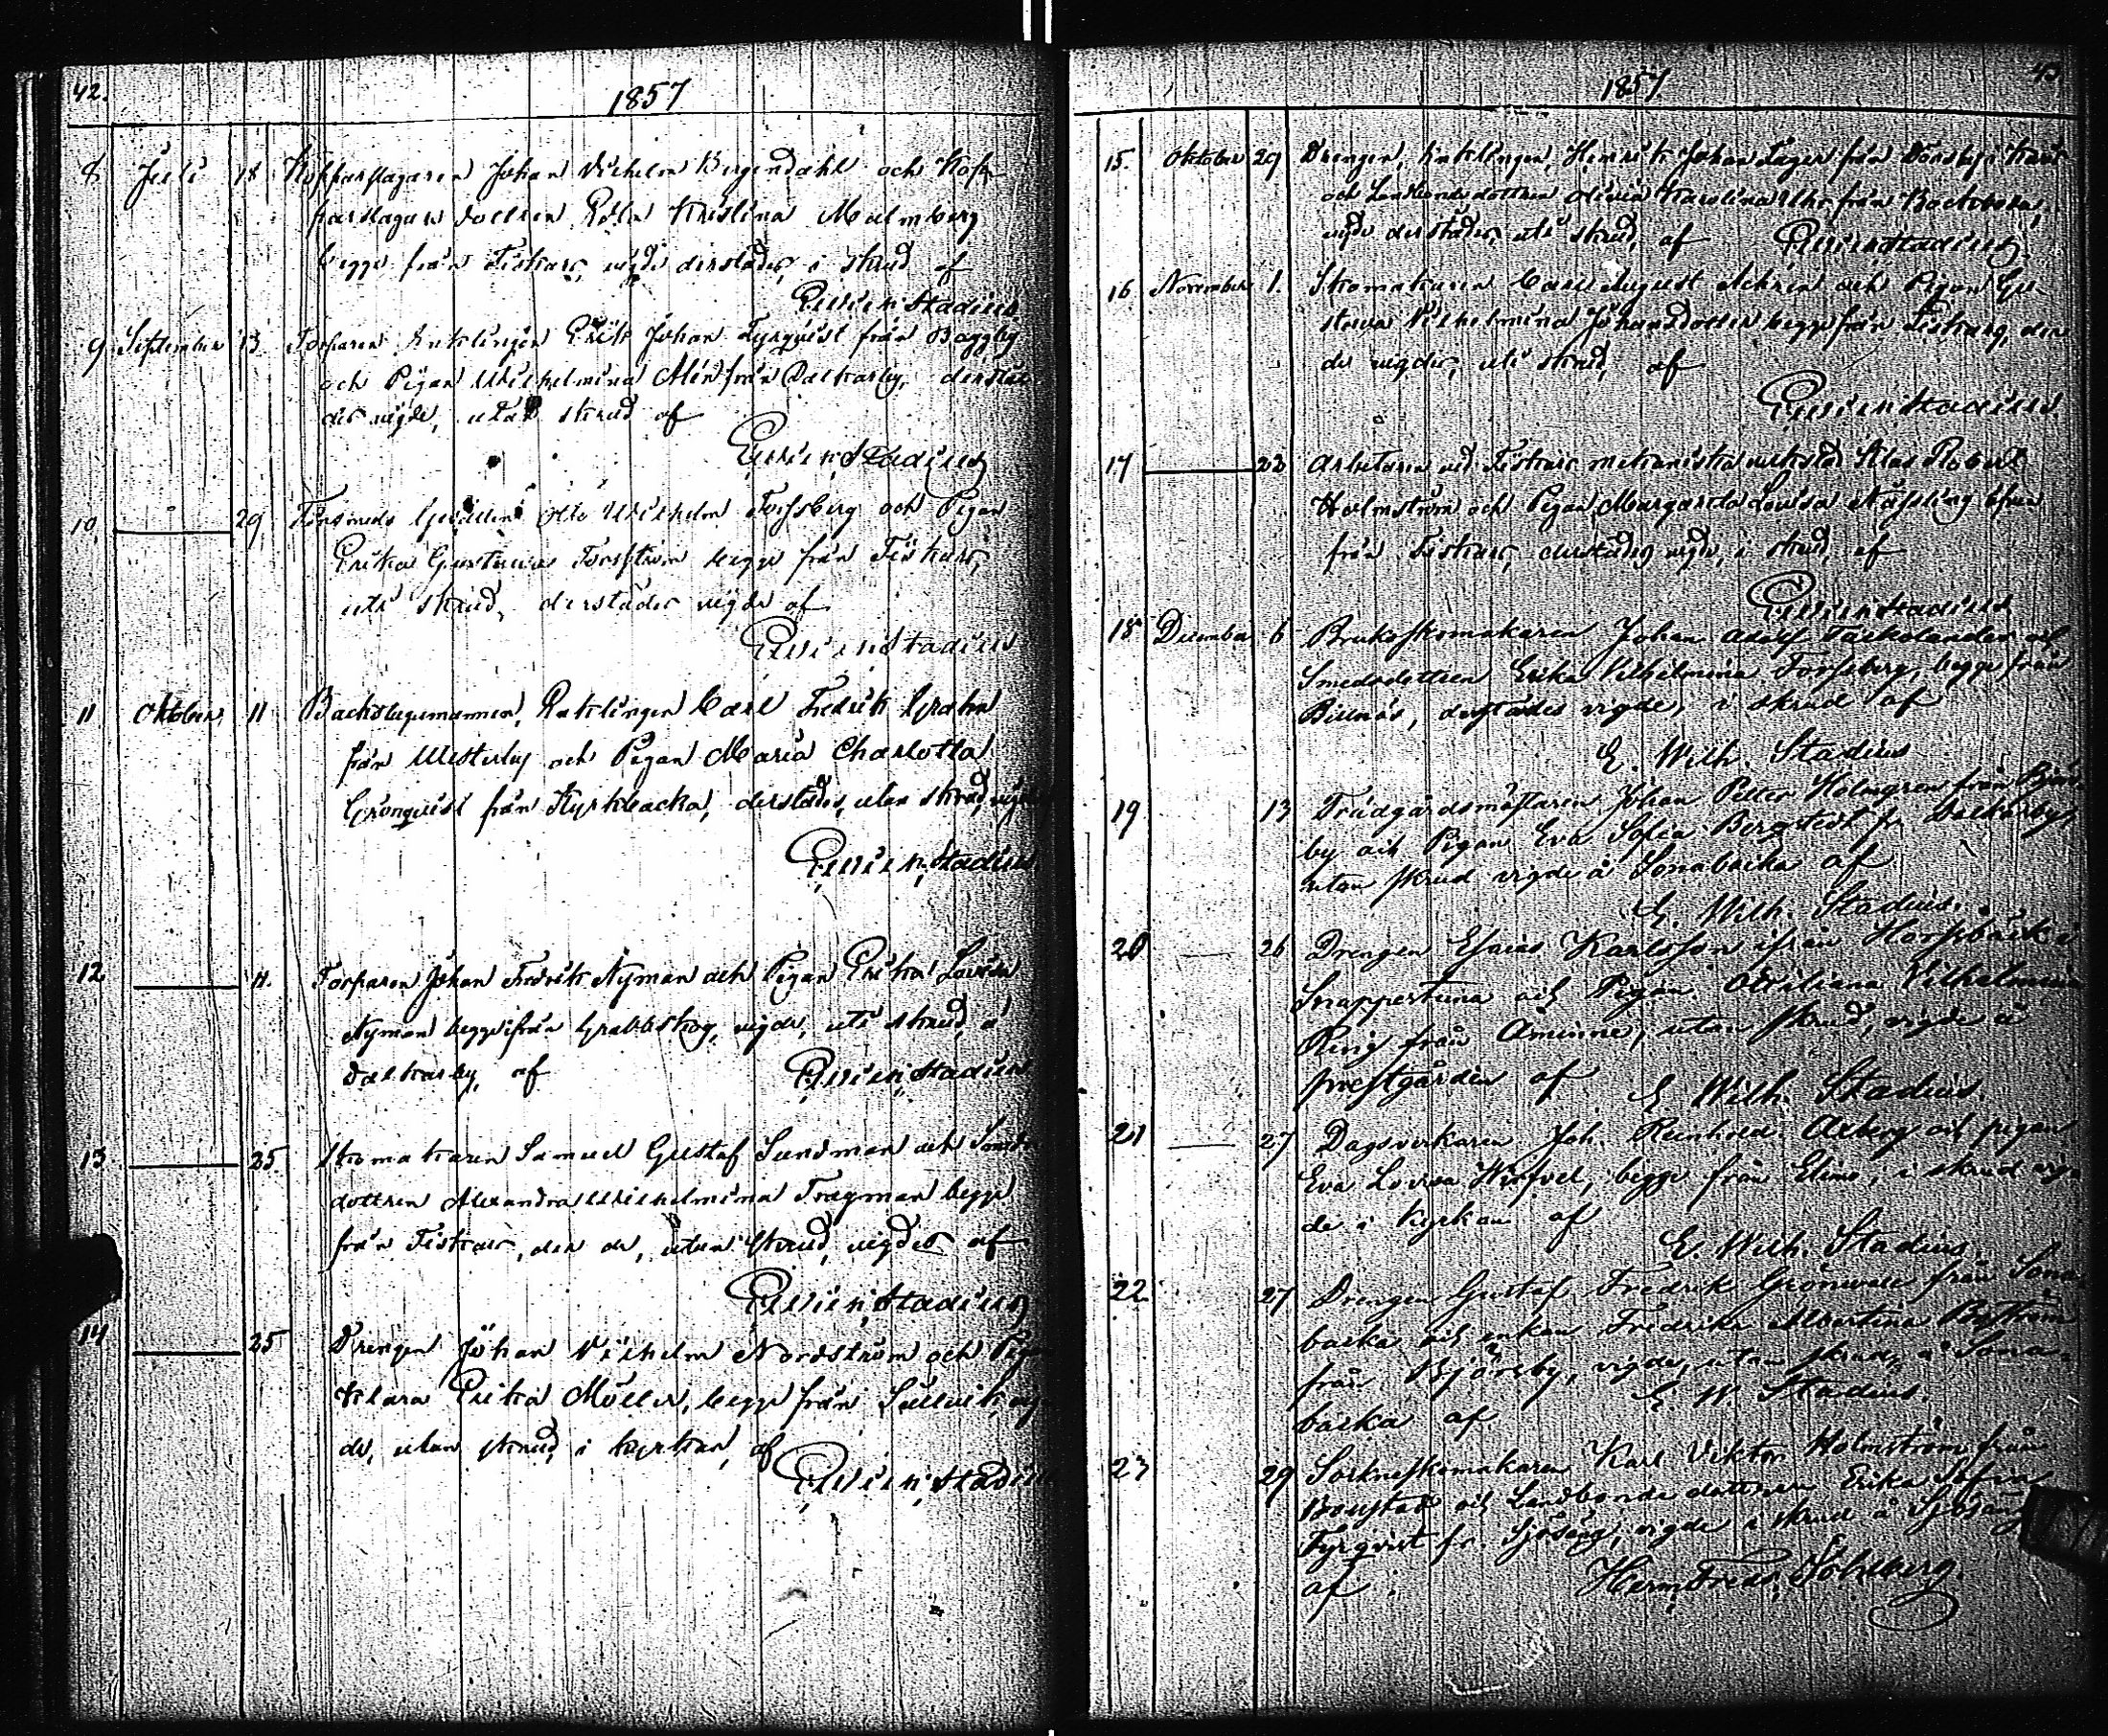 42.
1857
8 Juli 18 Kopparslagaren Johan Vilhelm Bergendahl och Kop-
parslagare dottren Kristina Malmberg
begge från Fiskars, vigde derstädes, i skrud af
Stadius
9 September 13 Torparen, Enklingen Erik Johan Fyrquist från Baggby
och Pigan Wilhelmina Alén från Dalkarby, derstä-
des vigde, utan skrud af
Stadius
10 29 Gesällen Otto Wilhelm Forssberg och Pigan
Erika Gustava Forsström begge från Fiskars,
uti skrud, derstädes vigde af
Stadius
11 Oktober 11 Backstugumannen, Enklingen Carl Fredrik Grahn
från Westerby och Pigan Maria Charlotta
Grönquist från Kyrkbacka, derstädes, utan skrud, vigde
Stadius
12 11. Torparen Johan Fredrik Nyman och Pigan Erika Lovisa
Nyman begge från Grabbskog, vigde, uti skrud, å
Dalkarby, af Stadius
13 25 Skomakaren Samuel Gustaf Sundman och Smeds-
dottren Alexandra Wilhelmina Tragman begge
från Fiskars, der de, utan skrud, vigdes af
Stadius
14 25 Drengen Johan Vilhelm Nordström och Pigan
Klara Erika Möller, begge från Sällvik, vig-
de, utan skrud, i kyrkan, af
Stadius
1857
43
15. Oktober 29 Drengen, Enklingen, Henrik Johan Fager från i Karis
och Landbondedottren Olivia Karolina från
vigde derstädes, uti skrud, af Stadius
16 November 1. Skomakaren Carl August och Pigan Gu-
stava Vilhelmina Johansdotter begge från Fiskars, der
de vigdes, uti skrud, af
Stadius
17 22 Arbetaren vid Fiskars mekaniska verkstad Klas Robert
Holmström och Pigan Margareta Lovisa Nässling
från Fiskars, derstädes vigde, i skrud, af
Stadius
18 December 6 Bruksskomakaren Johan Adolf Tackolander och
Smedsdottren Erika Vilhelmina Forssberg, begge från
Billnäs, derstädes vigde, i skrud af
E. Wilh. Stadius
19 13 Trädgårdsmästaren Johan Petter Holmgren från Björs-
by och Pigan Eva Sofia Bergstedt fr. Dalkarby,
utan skrud vigde å Sonabacka af
E. Wilh. Stadius.
20 26 Drengen Esaias Karlsson ifrån Horsbäck i
Snappertuna och Pigan Vilhelmina
Ring från Åminne, utan skrud, vigde å
prestgården af E Wilh. Stadius.
21 27 Dagsverkaren Joh. Reinhold Axberg och pigan
Eva Lovisa Wirfvel, begge från Elimo, i skrud vig-
de i kyrkan af
E. Wilh. Stadius.
22 27 Drengen Gustaf Fredrik Grönwall från Sona-
backa och enkan Fredrika Albertina Byström
från Björsby, vigde, utan skrud, å Sona-
backa af E. W. Stadius.
23 29 Socknenskomakaren Karl Viktor Holmström från
Bonstad och Landbonde dottren Erika Sofia
Fyrqvist fr. Sjösäng, vigde i skrud å Sjösäng
af